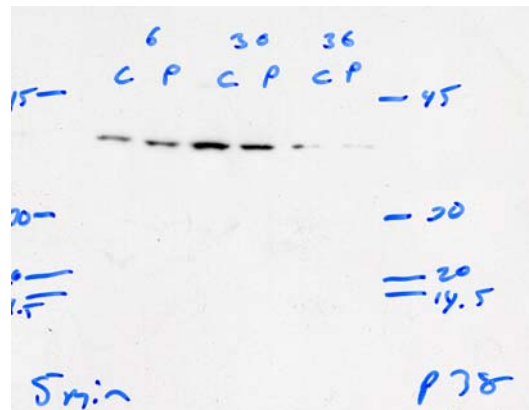 6 30 36
C P C P C P
45
30
20
14.5
5 min P 38